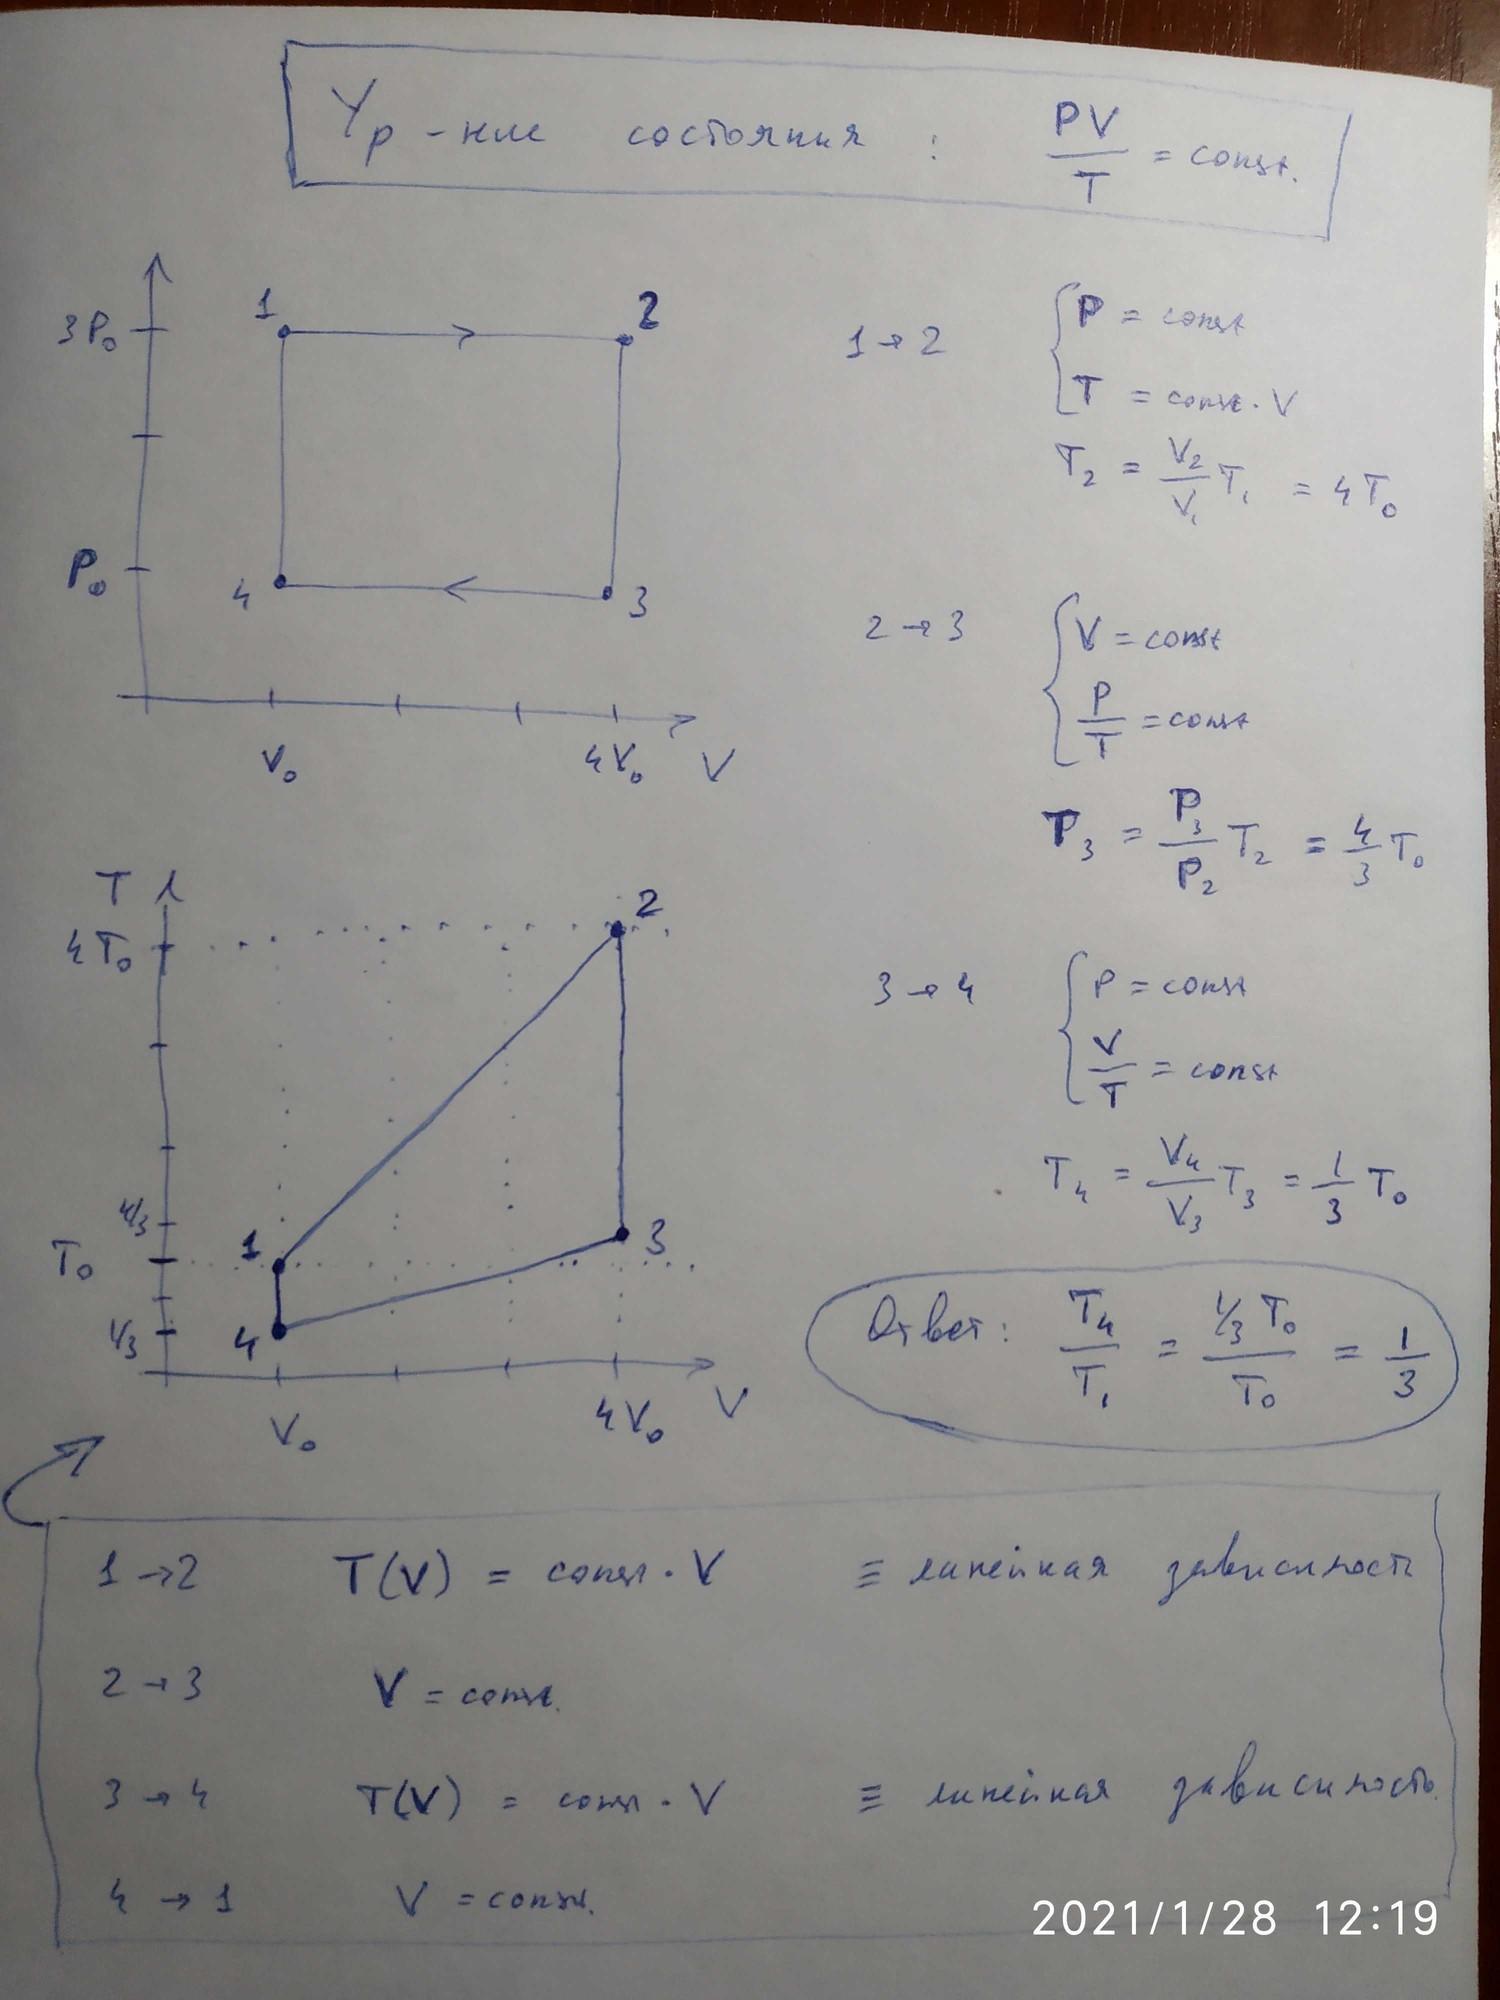 Ур-ние состояния : PV/T = const.
3P₀
1
2
P₀
4
3
V₀
4V₀
V
1→2
P = const
T = const · V
T₂ = V₂/V₁ T₁ = 4T₀
2→3
V = const
P/T = const
T₃ = P₃/P₂ T₂ = 4/3 T₀
3→4
P = const
V/T = const
T₄ = V₄/V₃ T₃ = 1/3 T₀
T
4T₀
2
4/3
T₀
1
3
1/3
4
V₀
4V₀
V
Ответ: T₄/T₁ = 1/3 T₀/T₀ = 1/3
1→2 T(V) = const · V ≡ линейная зависимость
2→3 V = const.
3→4 T(V) = const · V ≡ линейная зависимость.
4→1 V = const.
2021/1/28 12:19